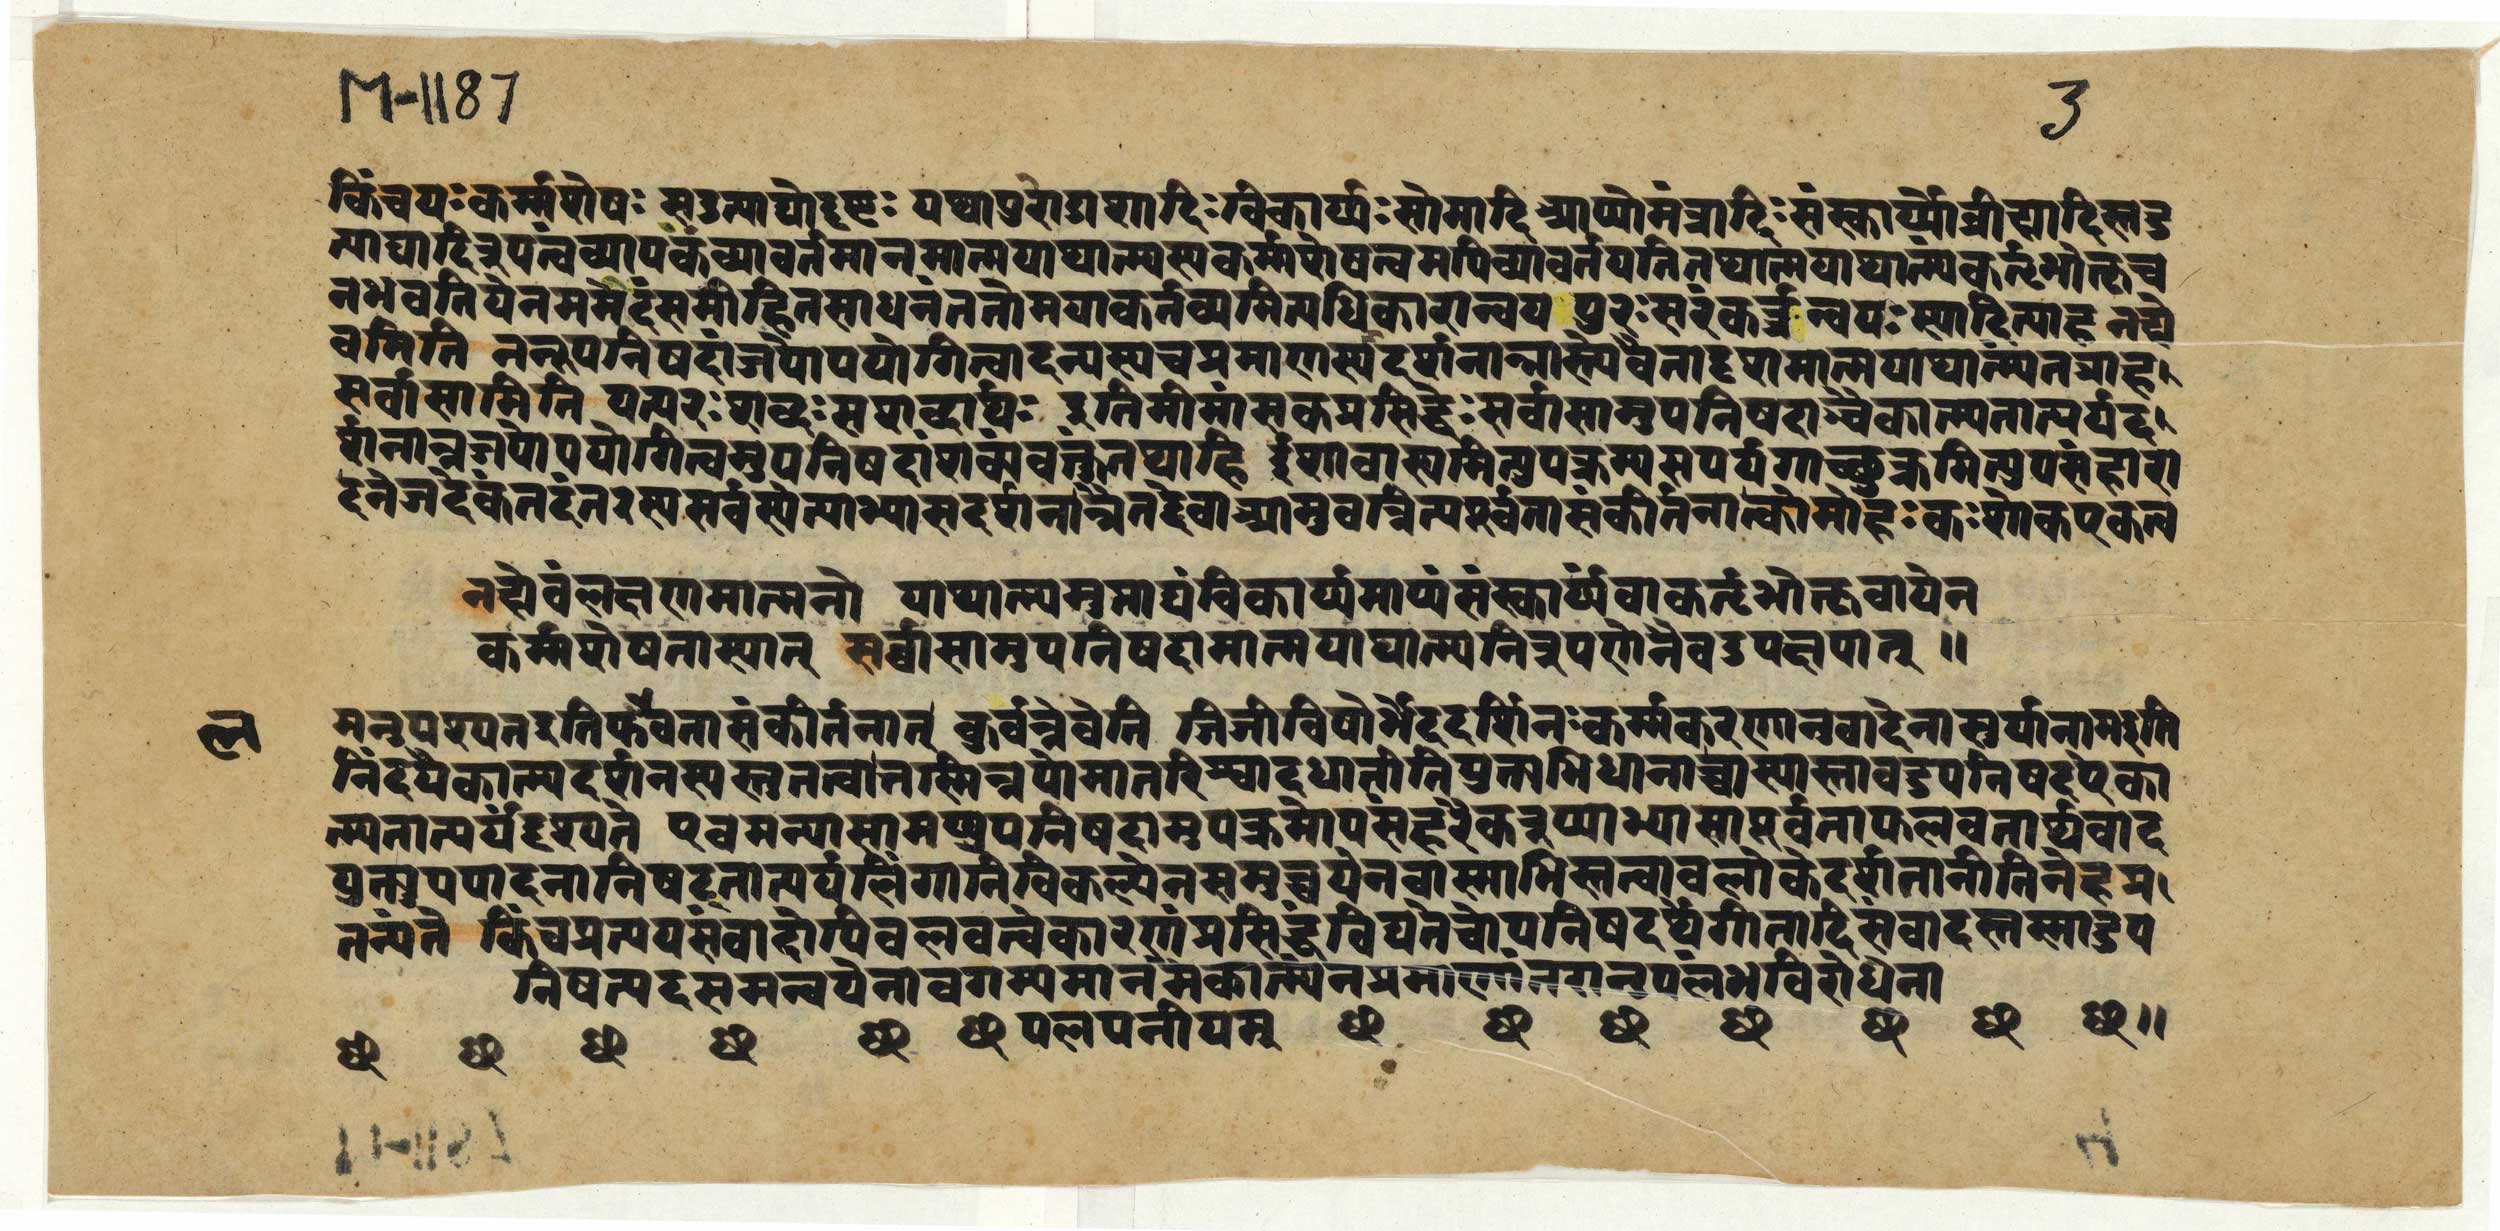 M-1187
3
किंचयःकर्म्मशेषः सउत्पाद्योदृष्टः यथापुरोडाशादिःविकार्य्यः सोमादिआप्योमंत्रादिःसंस्कार्य्योव्रीह्यादिस्तदु
त्पाद्यादिरूपत्वंव्यापकंव्यावर्तमानमात्मयाथात्म्यस्यकर्म्मशेषत्वमपिव्यावर्तयतितथात्मयाथात्म्यंकर्तृभोक्तृच
नभवतियेनममेदंसमीहितसाधनंततोमयाकर्तव्यमित्यधिकारान्वय पुरःसरंकर्त्रन्वयः स्यादित्याह नह्ये
वमिति ननूपनिषदांजपोपयोगित्वादन्यस्यचप्रमाणस्यदर्शनान्नास्त्येवैतादृशमात्मयाथात्म्यंतत्राह
सर्वासामिति यत्परःशब्दःसशब्दार्थः इतिमीमांसकप्रसिद्धेः सर्वासामुपनिषदाञ्चैकात्म्यतात्पर्यद
र्शनान्नजपोपयोगित्वमुपनिषदांशक्यंवक्तुंतथाहि ईशावास्यमित्युपक्रम्यसपर्यगाच्छुक्रमित्युपसंहारा
दनेजदेकंतदंतरस्यसर्वस्येत्याभ्यासदर्शनान्नैनदेवाआप्नुवन्नित्यपूर्वतासंकीर्तनात्कोमोहःकःशोकएकत्व
नह्येवंलक्षणमात्मनो याथात्म्यमुत्पाद्यंविकार्य्यमाप्यंसंस्कार्य्यंवाकर्तृभोक्तृवायेन
कर्म्मशेषतास्यात् सर्व्वासामुपनिषदामात्मयाथात्म्यनिरूपणेनैवउपक्षयात् ॥
मनुपश्यतइतिफलवत्तासंकीर्तनात् कुर्वन्नेवेति जिजीविषोर्भेददर्शिनःकर्म्मकरणानुवादेनासुर्यानामइति
निंदयैकात्म्यदर्शनस्यस्तुतत्वात्तस्मिन्नपोमातरिश्वादधातीतियुक्त्यभिधानाच्चास्यास्तावदुपनिषदएका
त्म्यतात्पर्यंदृश्यते एवमन्यासामप्युपनिषदामुपक्रमोपसंहारैकरूप्याभ्यासापूर्वताफलवत्तार्थवाद
युक्त्युपपादनानिषट्तात्पर्यलिंगानिविकल्पेनसमुच्चयेनवास्माभिस्तत्वावलोकेदर्शितानीतिनेहप्र
तन्यते किंचप्रत्ययसंवादोपिवलवत्वेकारणंप्रसिद्धंविद्यतेचोपनिषदर्थेगीतादिसंवादस्तस्मादुप
निषत्पदसमन्वयेनावगम्यमानमैकात्म्यंनप्रमाणांतरानुपलंभविरोधेना
पलपनीयम् ॥